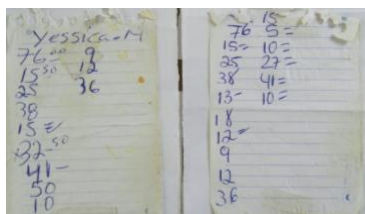 Yessica-M
76.00 9
15.50 12
25 36
38
15=
32.50
41-
50
10
15
76 5=
15= 10=
25 27=
38 41=
13- 10=
18
12=
9
12
36